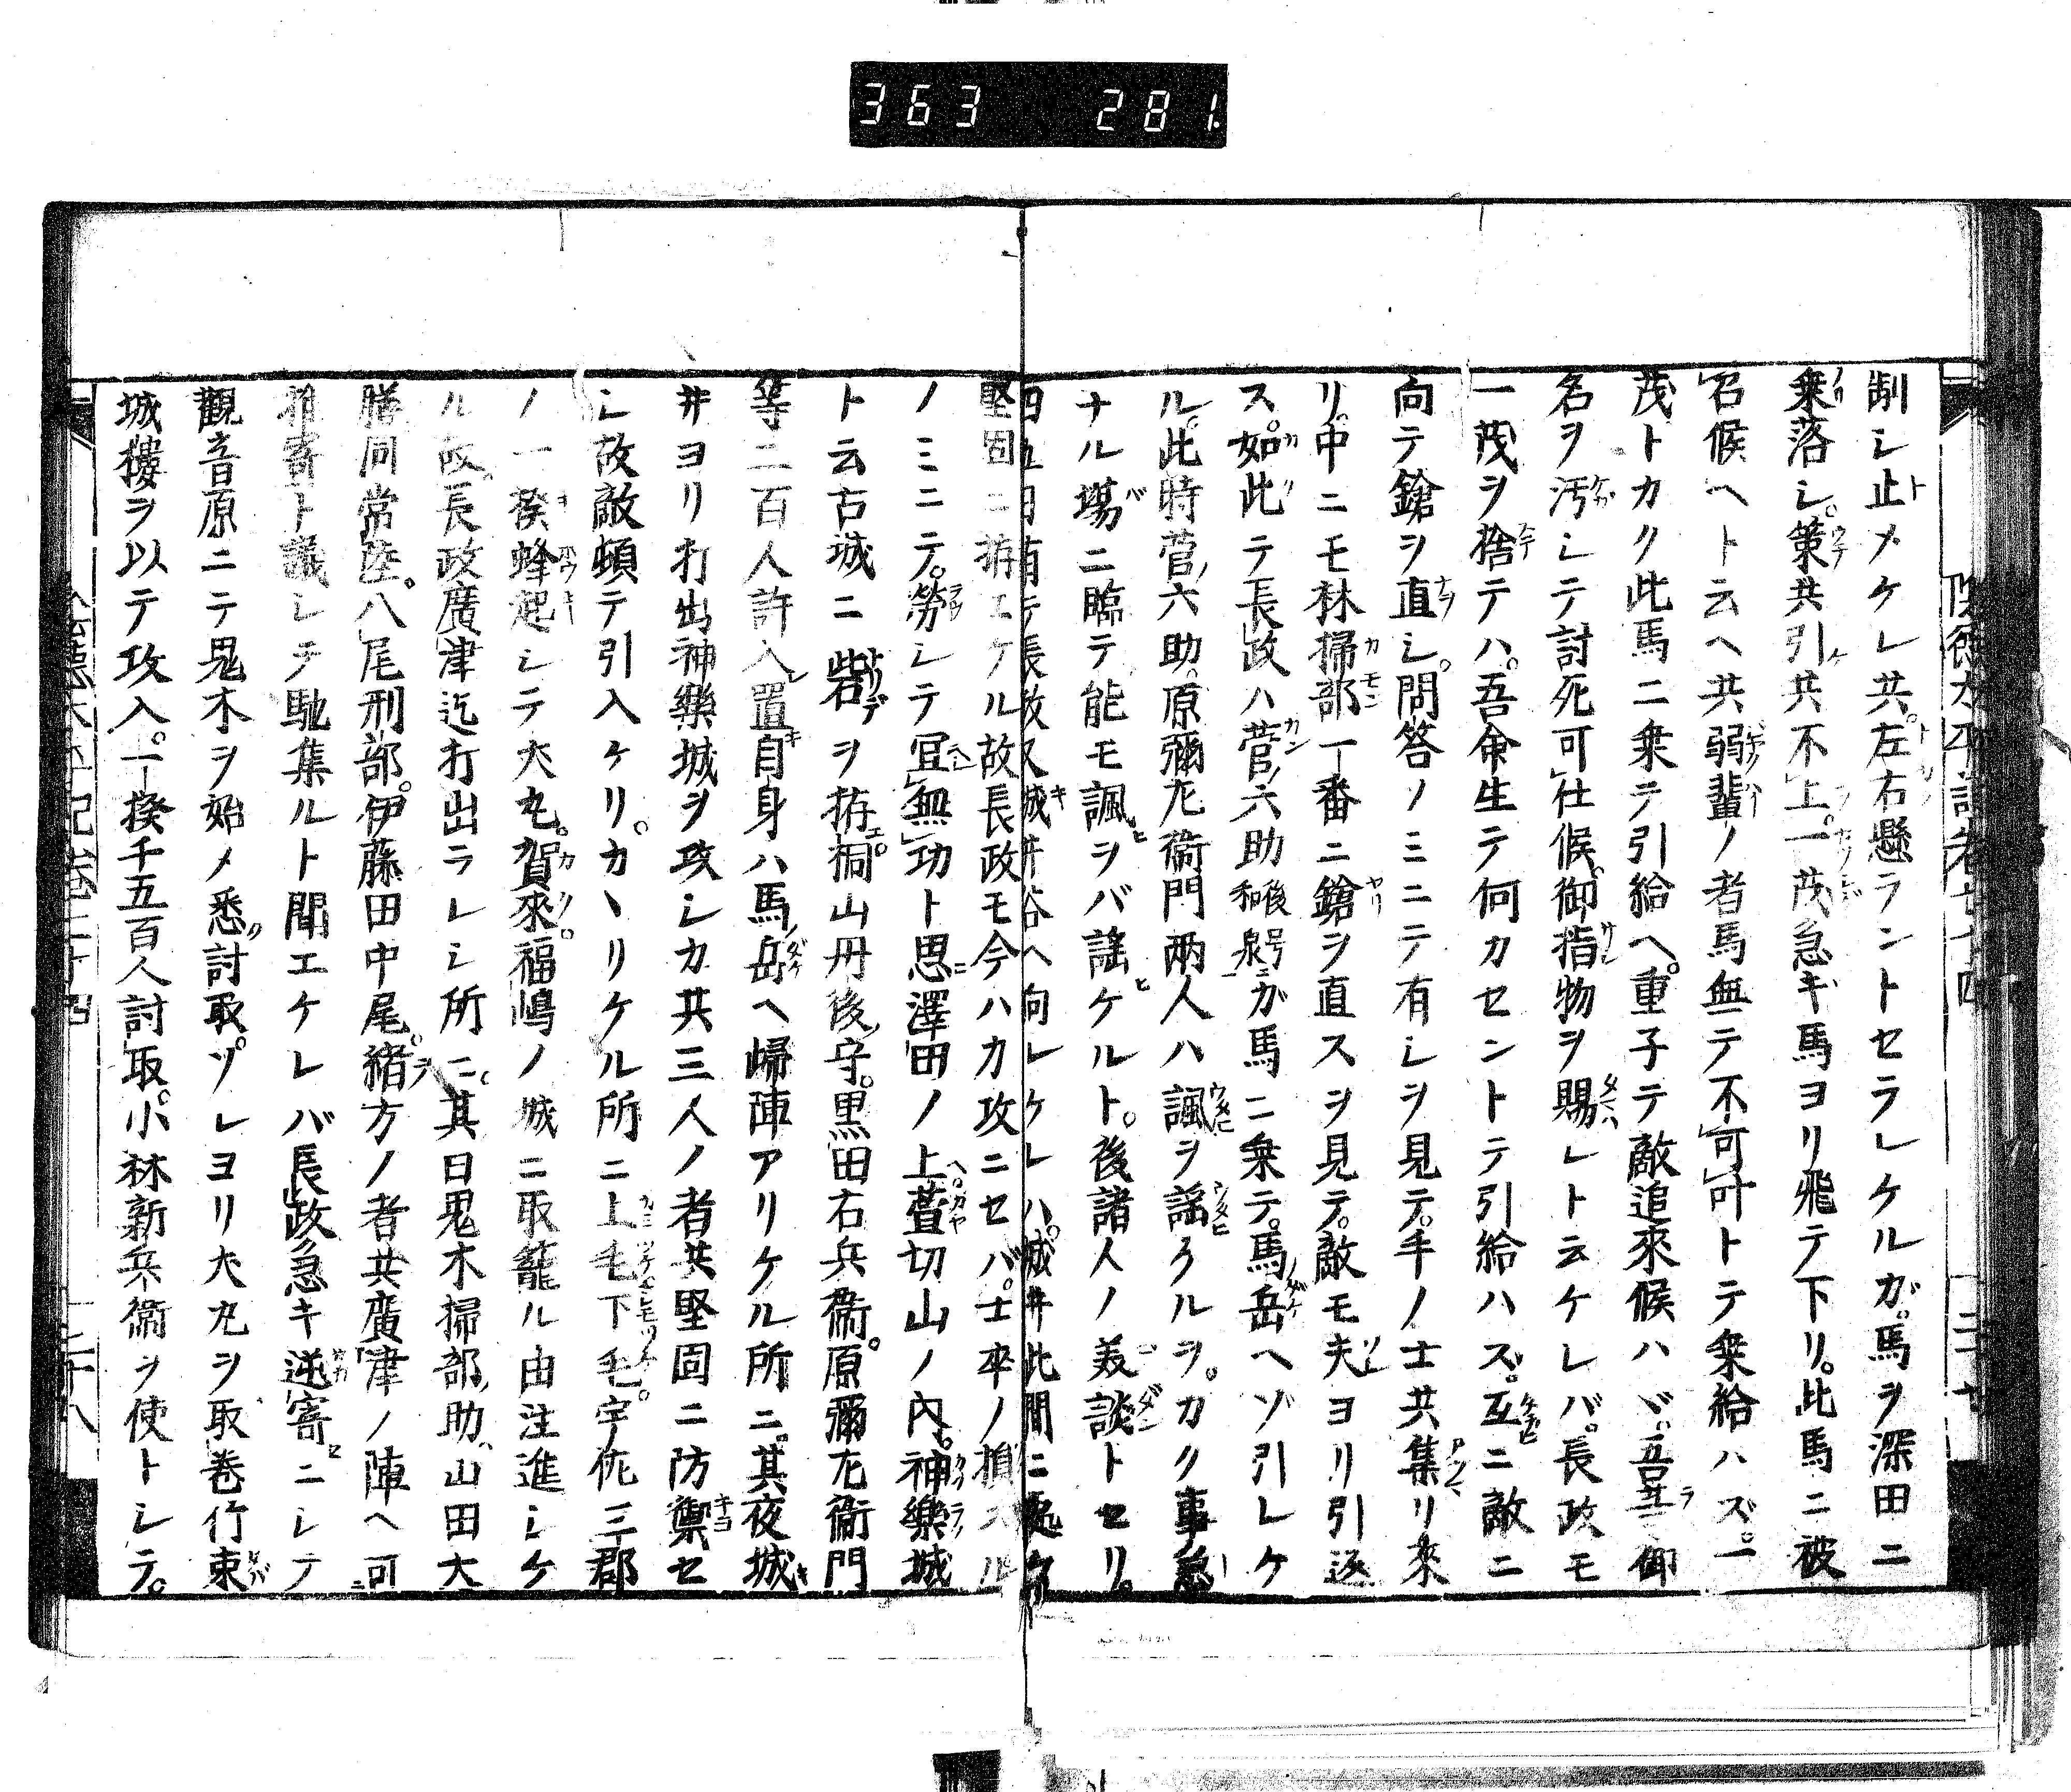 363 281
制シ止メケレ共。左右懸ラントセラレケルガ。馬ヲ深田ニ
乗落シ。策共引共不上。一茂急ギ馬ヨリ飛テ下リ。此馬ニ被
召候ヘト云ヘ共弱輩ノ者馬無テ不可叶トテ乗給ハズ。一
茂トカク此馬ニ乗テ引給ヘ。重子テ敵追來候ハヾ。吾等御
名ヲ汚シテ討死可仕候。御指物ヲ賜レト云ケレバ。長政モ
一茂ヲ捨テハ。吾命生テ何カセントテ引給ハズ。互ニ敵ニ
向テ鎗ヲ直シ。問答ノミニテ有シヲ見テ。手ノ士共集リ來
リ。中ニモ林掃部一番ニ鎗ヲ直スヲ見テ。敵モ夫ヨリ引返
ス。如此テ長政ハ菅六助後号和泉ガ馬ニ乗テ。馬岳ヘゾ引レケ
ル。此時菅六助。原彌左衞門兩人ハ諷ヲ謡クルヲ。カク事
ナル塲ニ臨テ能モ諷ヲバ謡ケルト。後諸人ノ美談トセリ。
四五日有テ長政又城井谷ヘ向レケレハ。城井此間ニ
堅固ニ拵エケル故長政モ今ハカ攻ニセバ。士卒ノ損スル
ノミニテ。勞シテ冝無功ト思澤田ノ上萱切山ノ內。神樂城
ト云古城ニ砦ヲ拵桐山丹後守。黒田右兵衞。原彌左衞門
等二百人許入置自身ハ馬岳ヘ歸陣アリケル所ニ。其夜城
井ヨリ打出神樂城ヲ攻シカ共三人ノ者共堅固ニ防禦セ
シ故敵頓テ引入ケリ。カヽリケル所ニ上毛下毛宇佐三郡
ノ一揆蜂起シテ大丸。賀來福嶋ノ城ニ取籠ル由注進シケ
ル故。長政廣津迄打出ラレシ所ニ。其日鬼木掃部助。山田大
膳同常陸。八尾刑部。伊藤田中尾。緒方ノ者共廣津ノ陣ヘ可
相寄ト議シテ馳集ルト聞エケレバ長政急キ逆寄ニシテ
觀音原ニテ鬼木ヲ始メ悉討取ソレヨリ大丸ヲ取巻竹束
城樓ヲ以テ攻入。一揆千五百人討取。小林新兵衞ヲ使トシテ。